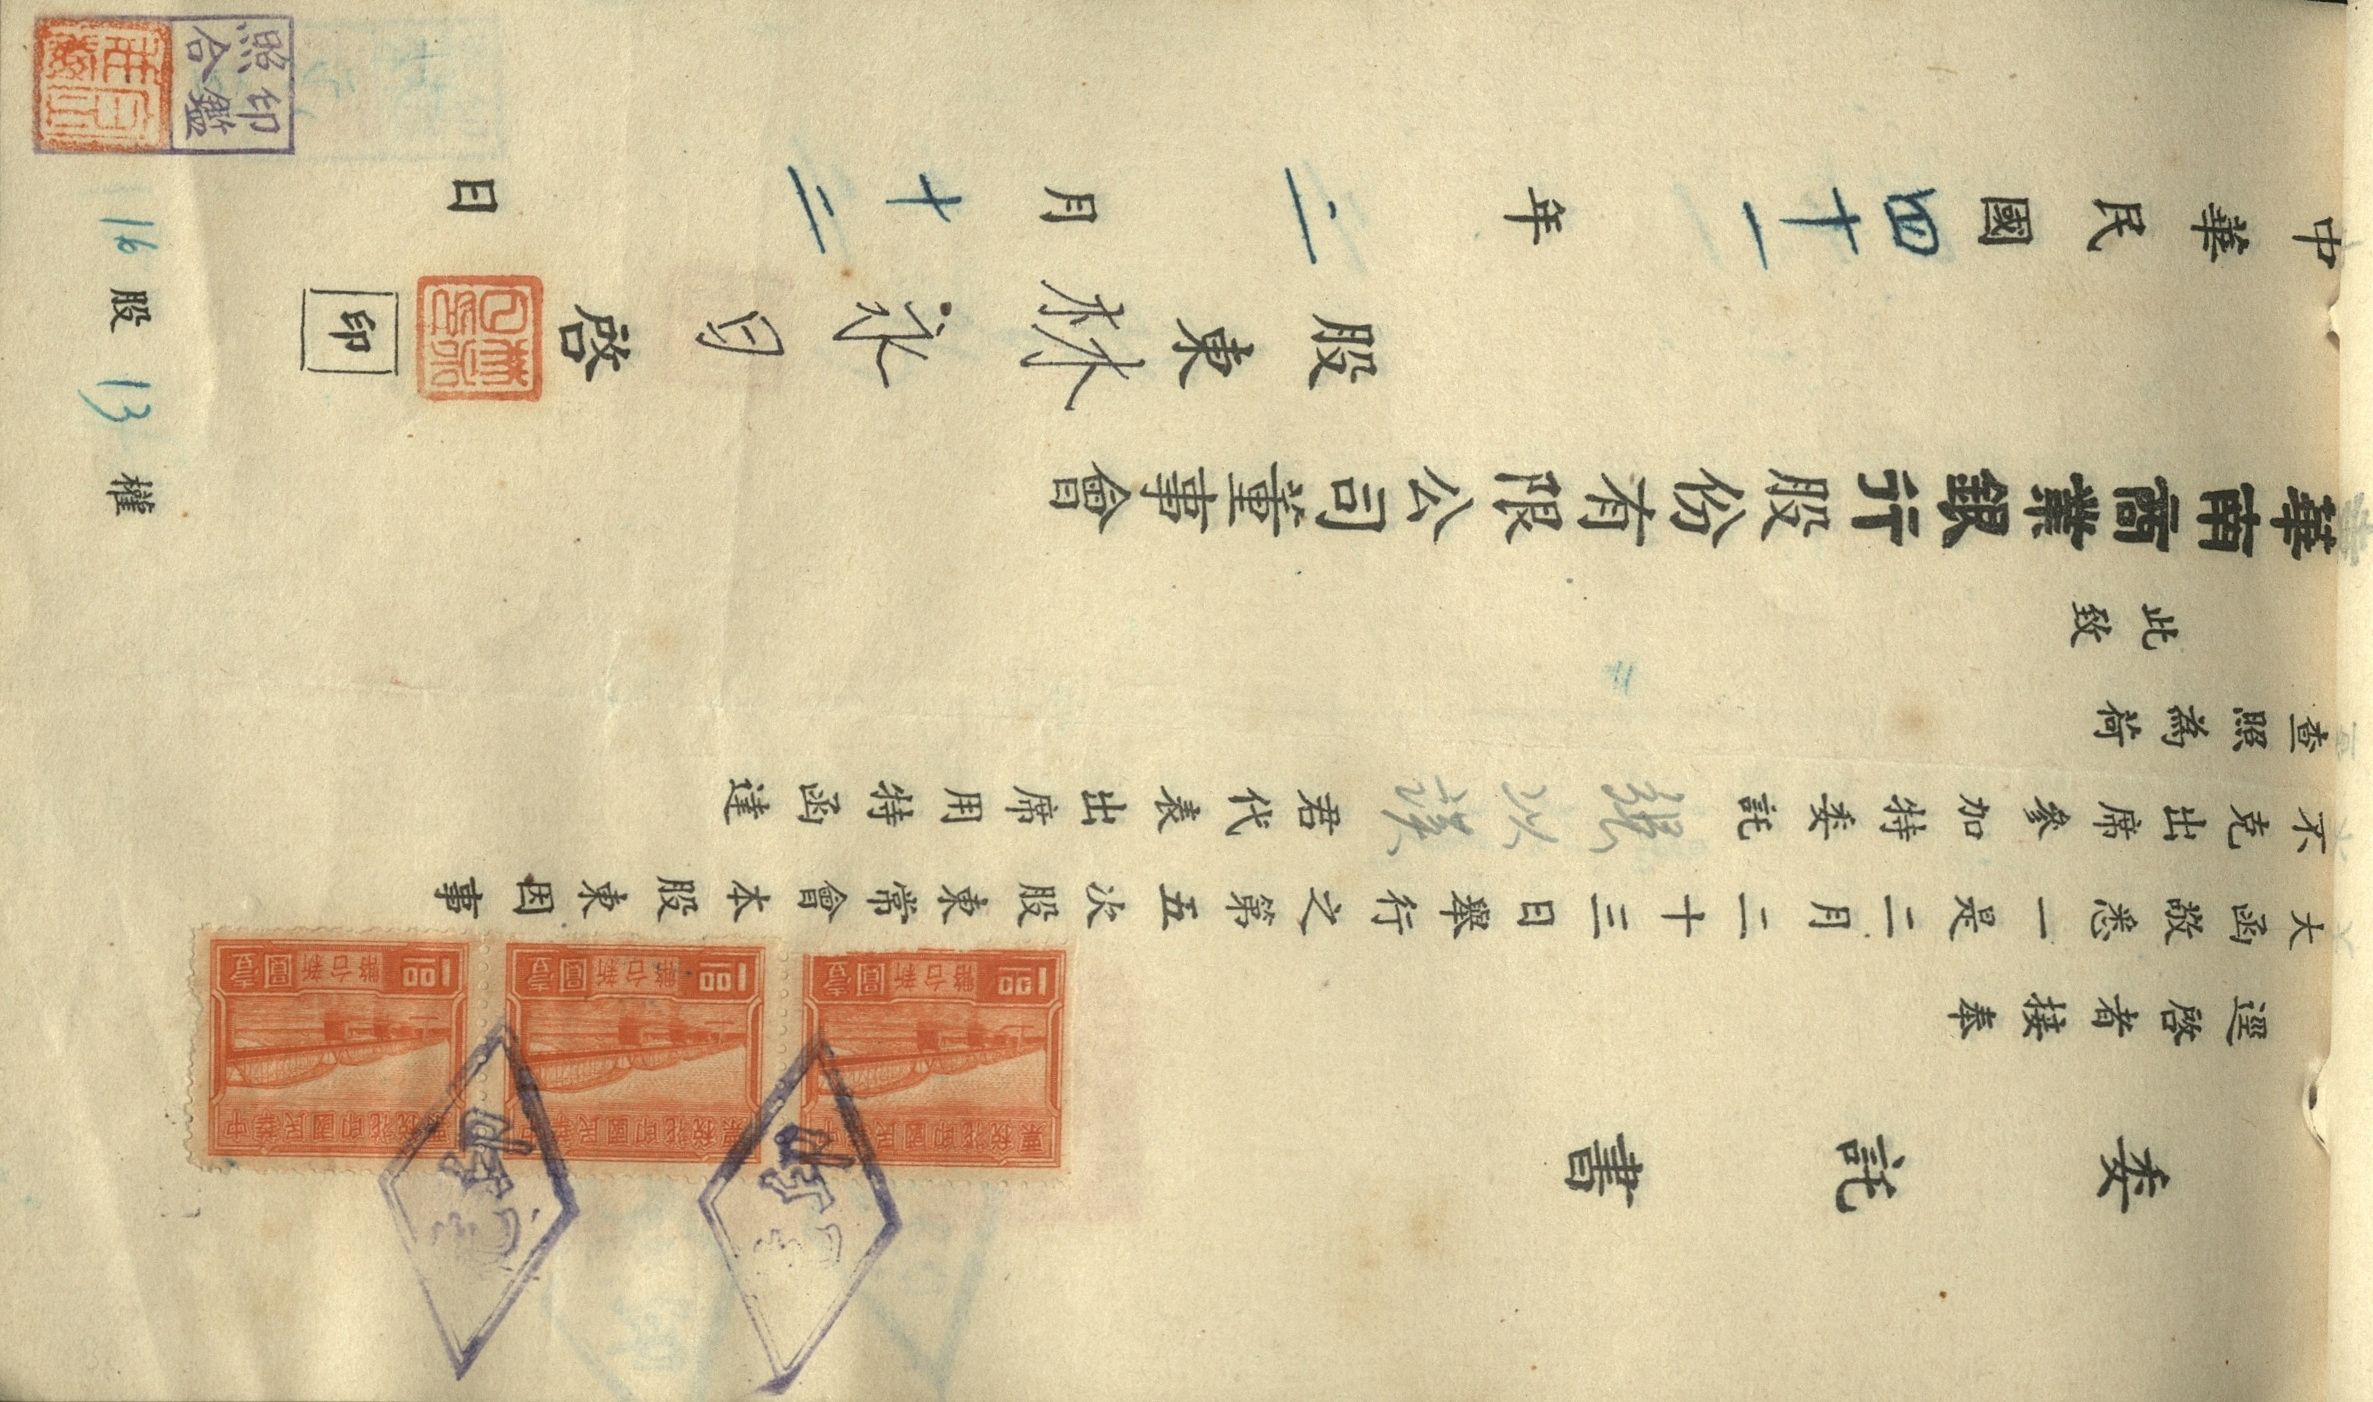 委託書
逕啓者接奉
大函敬悉一是二月二十三日舉行之第五次股東常會本股東因事
不克出席參加特委託張以謨君代表出席用特函達
查照為荷
此致
華南商業銀行股份有限公司董事會
股東林永日啓印
中華民國四十一年二月十二日
16股13權
印鑑
照合
1.00 新台幣壹圓
中華民國印花稅票
1.00 新台幣壹圓
中華民國印花稅票
1.00 新台幣壹圓
中華民國印花稅票